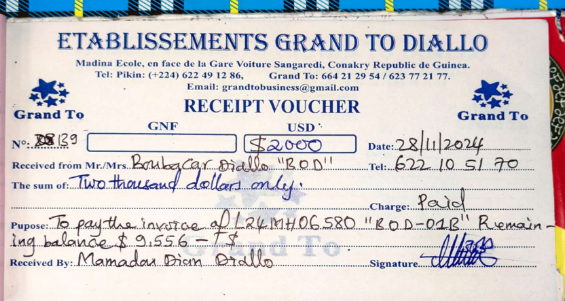 ETABLISSEMENTS GRAND TO DIALLO
Madina Ecole, en face de la Gare Voiture Sangaredi, Conakry Republic de Guinea.
Tel: Pikin: (+224) 622 49 12 86, Grand To: 664 21 29 54 / 623 77 21 77.
Email: grandtobusiness@gmail.com
Grand To
RECEIPT VOUCHER
Grand To
GNF USD
N°: 139 $2000 Date: 28/11/2024
Received from Mr./Mrs. Boubacar Diallo "BOD" Tel: 622 10 51 70
The sum of: Two thousand dollars only.
Charge: Paid
Pupose: To pay the invoice of L24MH06580 "BOD-01B" Remain-
ing balance $ 9,556 –
Grand To
Received By: Mamadou Dian Diallo Signature